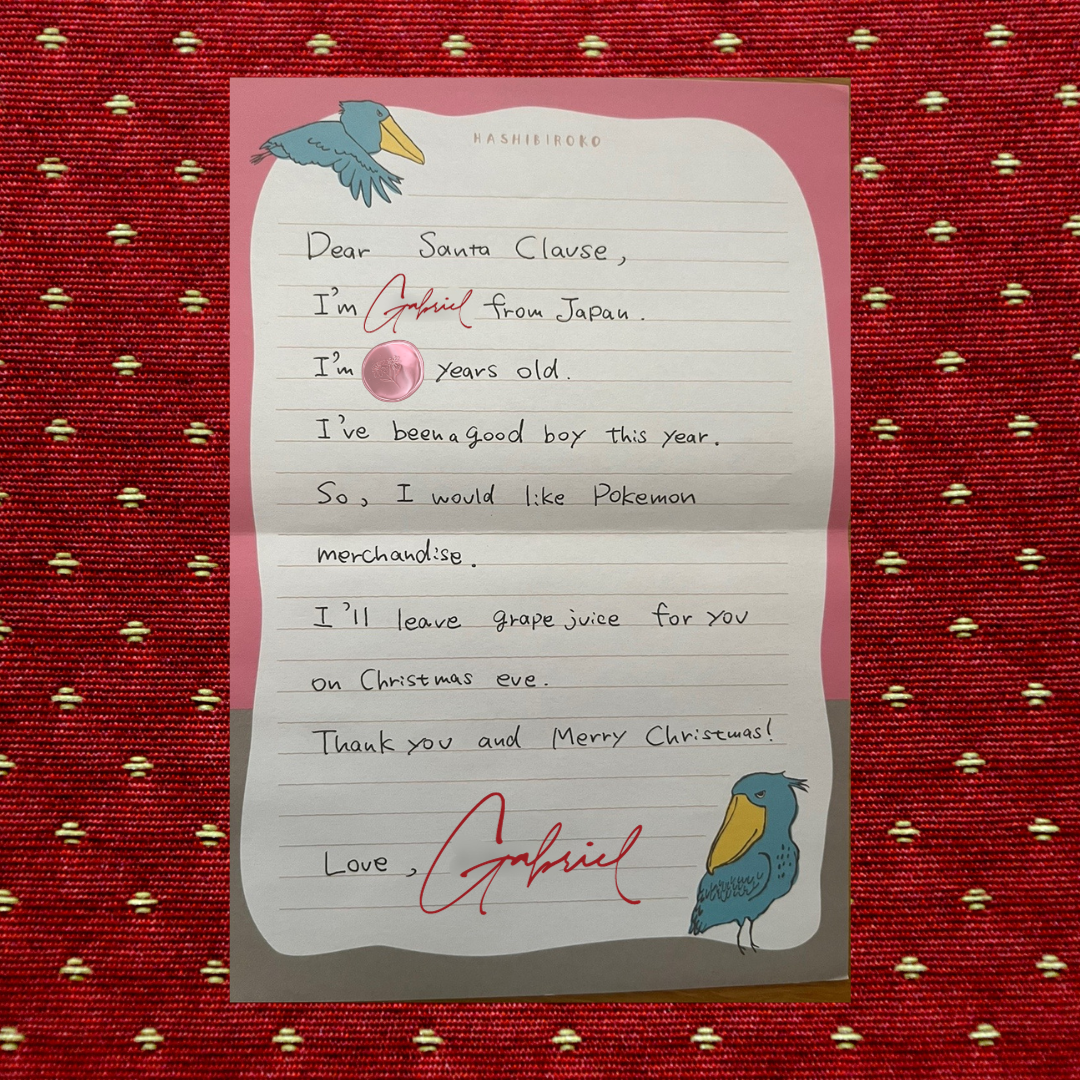 HASHIBIROKO
Dear Santa Clause,
I'm Gabriel from Japan.
I'm years old.
I've been a good boy this year.
So, I would like Pokemon
merchandise.
I'll leave grape juice for you
on Christmas eve.
Thank you and Merry Christmas!
Love, Gabriel